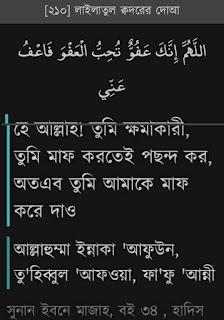 [২১০] লাইলাতুল ক্বদরের দোআ
اللَّهُمَّ إِنَّكَ عَفُوٌّ تُحِبُّ الْعَفْوَ فَاعْفُ
عَنِّي
হে আল্লাহ! তুমি ক্ষমাকারী,
তুমি মাফ করতেই পছন্দ কর,
অতএব তুমি আমাকে মাফ
করে দাও
আল্লাহুম্মা ইন্নাকা 'আফুউন,
তু'হিব্বুল 'আফওয়া, ফা'ফু 'আন্নী
সুনান ইবনে মাজাহ, বই ৩৪ , হাদিস